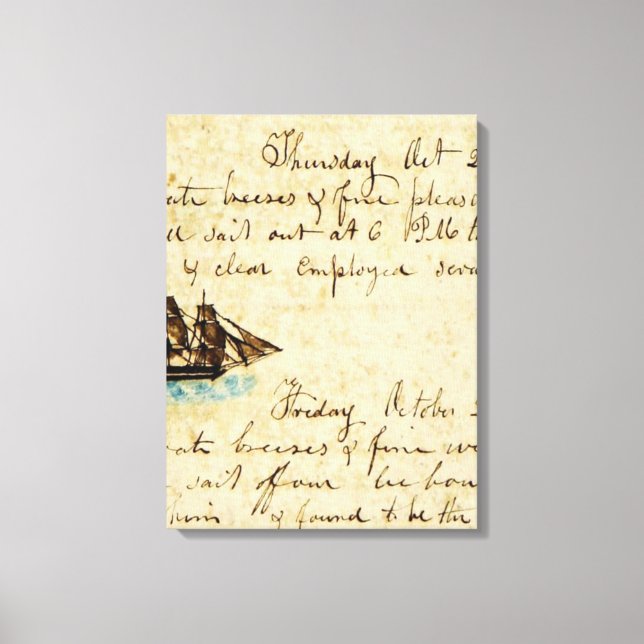 Thursday Oct 2
ate breezes & fine pleas
sail out at 6 PM t
& clear Employed seva
Friday October 2
ate breezes & fine we
sail off our
him & found to be the